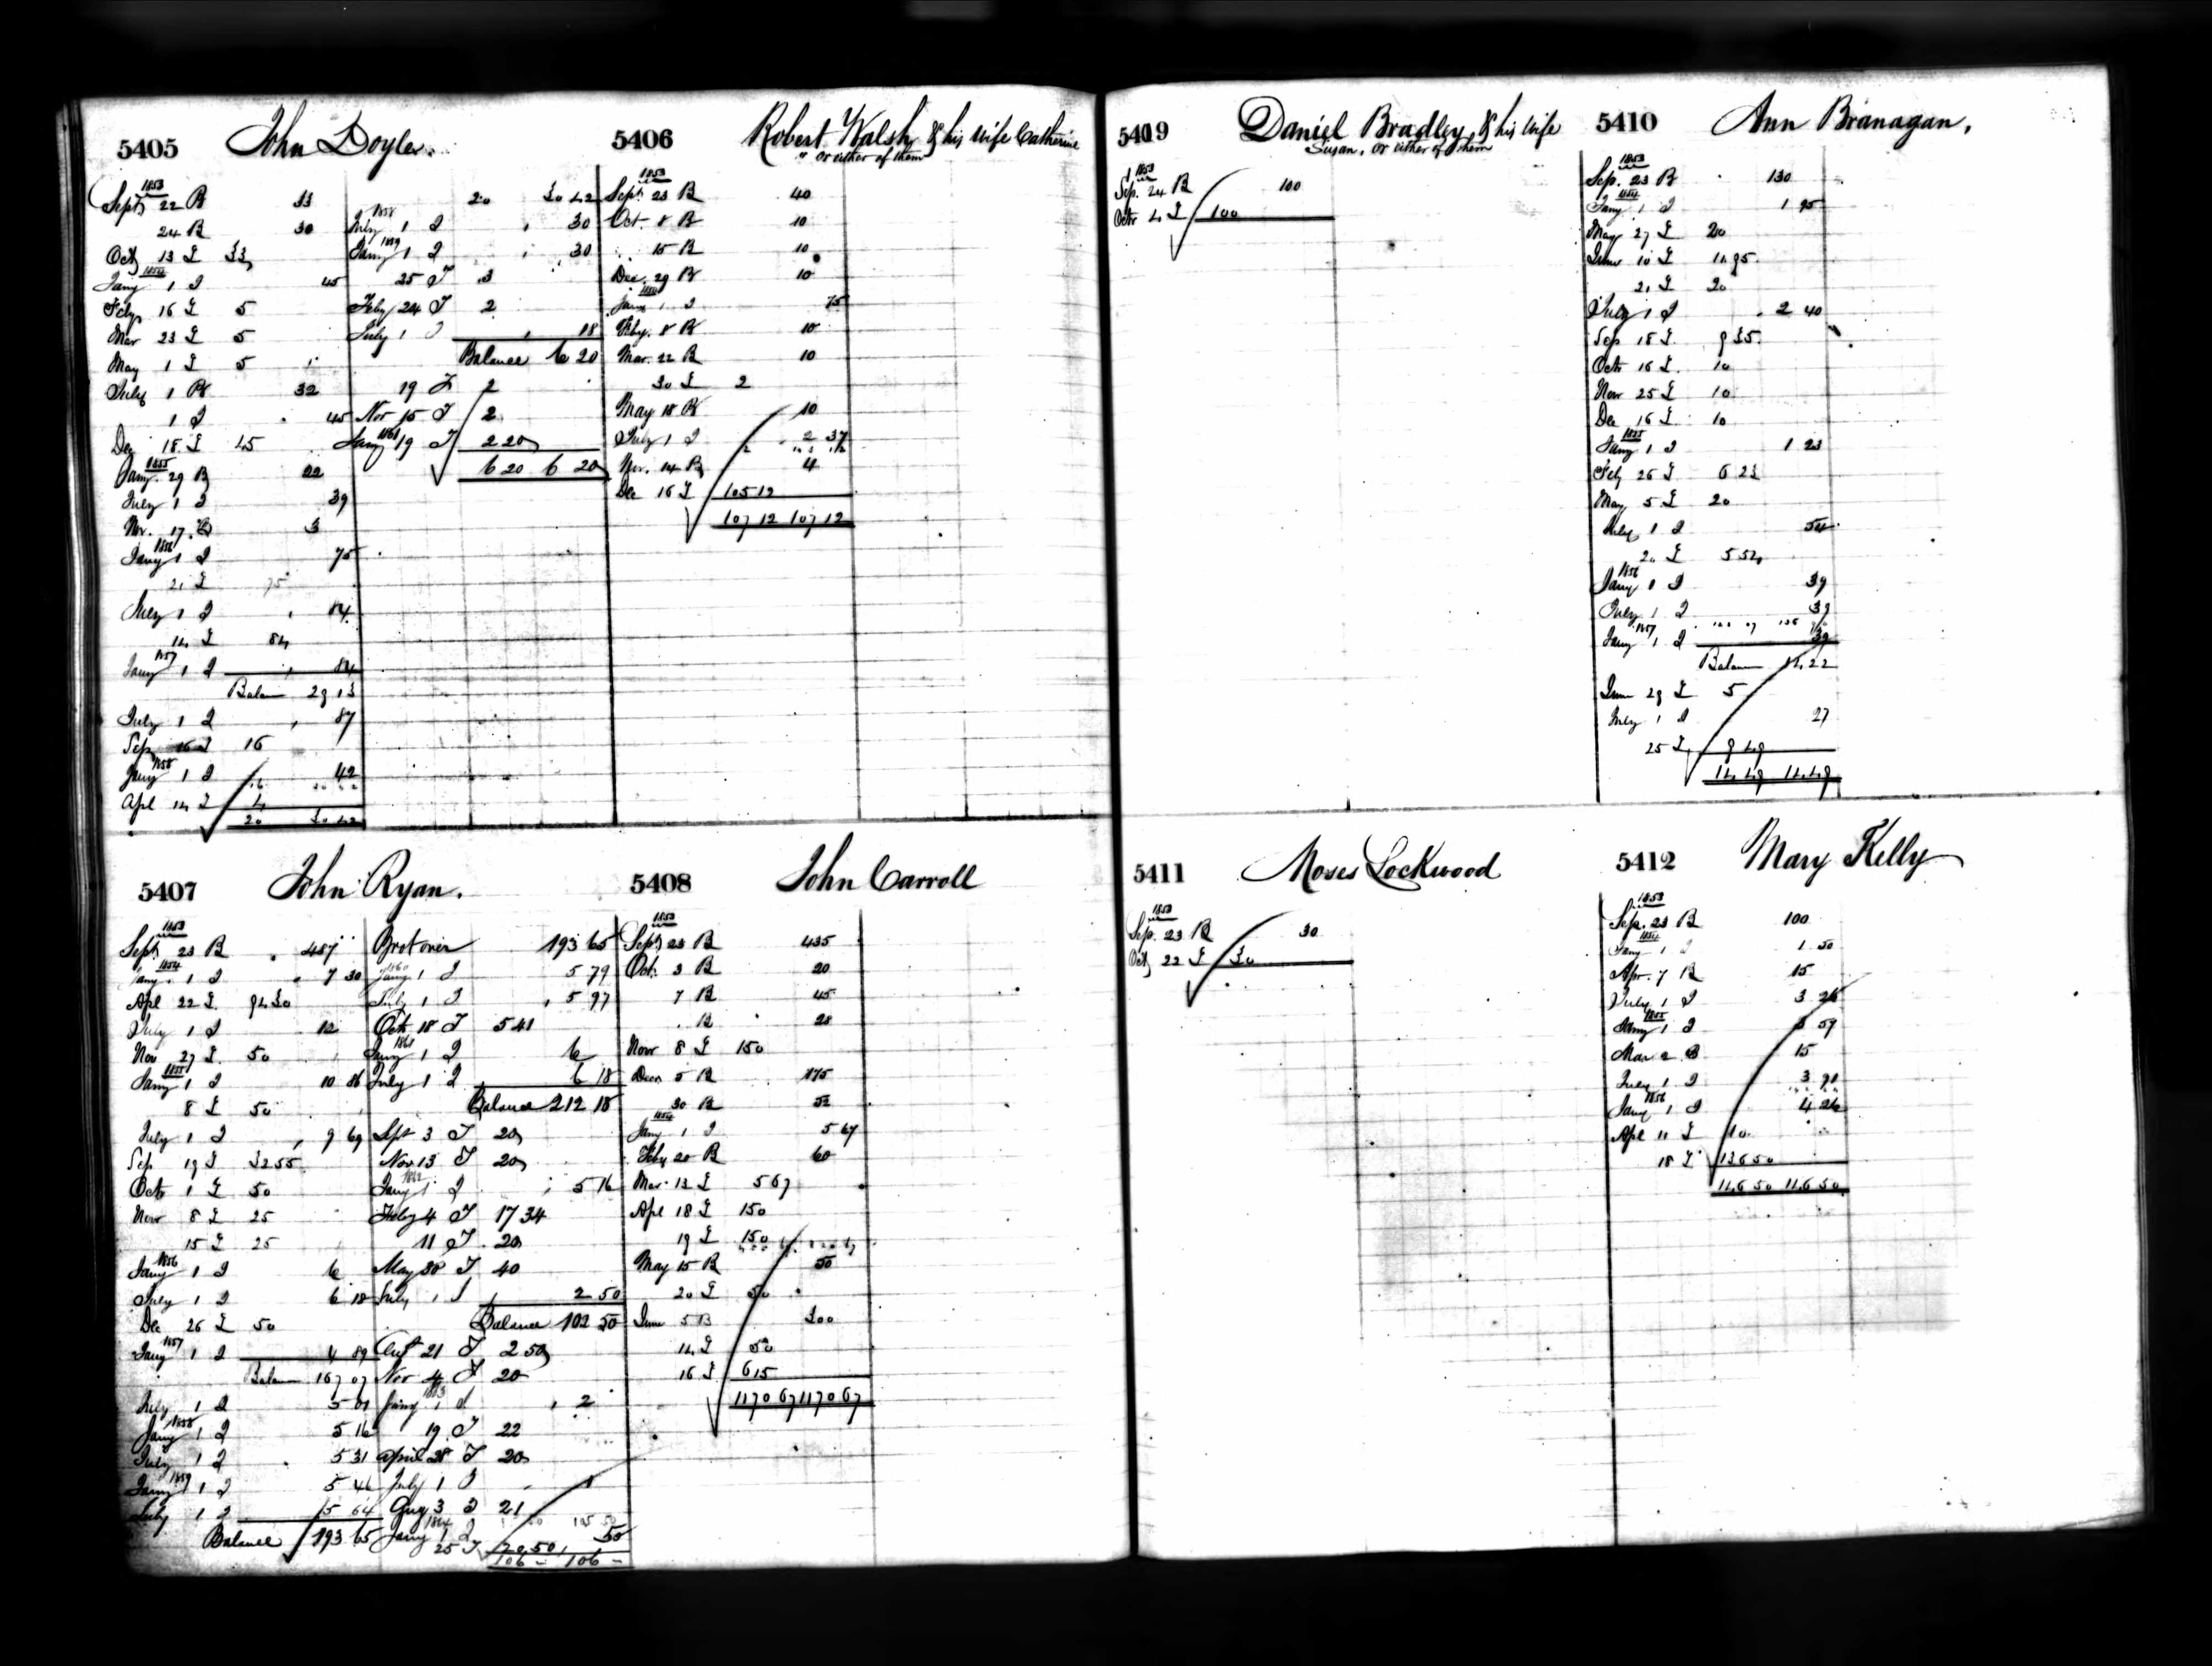 5405 John Doyle.
1853
Sept 22 B 33
24 B 30
Oct 13 I 33
1854
Jany 1 I 45
Feby 16 I 5
Mar 23 I 5
May 1 I 5
July 1 B 32
1 I 45
Dec 18 I 45
1855
Jany 29 B 22
July 1 I 39
Nov. 17 B 3
1856
Jany 1 I 75
21 I 75
July 1 I 84
14 I 84
1857
Jany 1 I 84
Balance 29 13
July 1 I 87
Sep 16 I 16
1858
Jany 1 I 42
Apl 14 I 4
20 30 42
20 30 42
1858
July 1 I 30
1859
Jany 1 I 30
25 I 3
Feby 24 I 2
July 1 I 18
Balance 6 20
19 I 2
Nov 15 I 2
1860
Jany 19 I 2 20
6 20 6 20
5406 Robert Walsh & his wife Catherine
" or either of them
1853
Sept. 23 B 40
Oct. 8 B 10
15 B 10
Dec. 29 B 10
1854
Jany 1 I 75
Feby. 8 B 10
Mar. 22 B 10
30 I 2
May 18 B 10
July 1 I 2 37
Nov. 14 B 4
Dec 16 I 105 12
107 12 107 12
5409 Daniel Bradley, & his wife
Susan, or either of them
1853
Sep. 24 B 100
Octr 4 I 100
5410 Ann Branagan,
1853
Sep. 23 B 130
1854
Jany 1 I 1 95
May 27 I 20
June 10 I 11 95
21 I 20
July 1 I 2 40
Sep 18 I 9 35
Octr 16 I 10
Nov 25 I 10
Dec 16 I 10
1855
Jany 1 I 1 23
Feby 26 I 6 23
May 5 I 20
July 1 I 54
20 I 5 54
1856
Jany 1 I 39
July 1 I 39
1857
Jany 1 I 39
Balance 14 22
June 29 I 5
July 1 I 27
25 I 9 49
14 49 14 49
5407 John Ryan.
1853
Sept. 23 B 487
1854
Jany. 1 I 7 30
Apl 22 I 94 30
July 1 I 12
Nov 27 I 50
1855
Jany 1 I 10 86
8 I 50
July 1 I 9 69
Sep 19 I 32 55
Octr 1 I 50
Nov 8 I 25
15 I 25
1856
Jany 1 I 6
July 1 I 6 18
Dec 26 I 50
1857
Jany 1 I 4 89
Balance 167 07
July 1 I 5 01
1858
Jany 1 I 5 16
July 1 I 5 31
1859
Jany 1 I 5 46
July 1 I 5 64
Balance 193 65
Brot over 193 65
1860
Jany 1 I 5 79
July 1 I 5 97
Octr 18 I 5 41
1861
Jany 1 I 6
July 1 I 6 18
Balance 212 18
Sept 3 I 20
Nov 13 I 20
1862
Jany 1 I 5 16
Feby 4 I 17 34
11 I 20
May 28 I 40
July 1 I 2 50
Balance 102 50
Aug 21 I 2 50
Nov 4 I 20
1863
Jany 1 I 2
19 I 22
April 28 I 20
July 1 I 1
Aug 3 I 21
1864
Jany 1 I 50
25 I 20 50
106 - 106 -
5408 John Carroll
1853
Sept 23 B 435
Oct. 3 B 20
7 B 45
B 28
Novr 8 I 150
Decr 5 B 175
30 B 52
1854
Jany 1 I 5 67
Feby 20 B 60
Mar. 13 I 5 67
Apl 18 I 150
19 I 150
May 15 B 50
20 I 50
June 5 B 300
14 I 50
16 I 615
1170 67 1170 67
5411 Moses Lockwood
1853
Sep. 23 B 30
Oct 22 I 30
5412 Mary Kelly
1853
Sep. 23 B 100
1854
Jany 1 I 1 50
Apr. 7 B 15
July 1 I 3 24
1855
Jany 1 I 3 59
Mar 2 B 15
July 1 I 3 91
1856
Jany 1 I 4 26
Apl 11 I 10
18 I 136 50
146 50 146 50